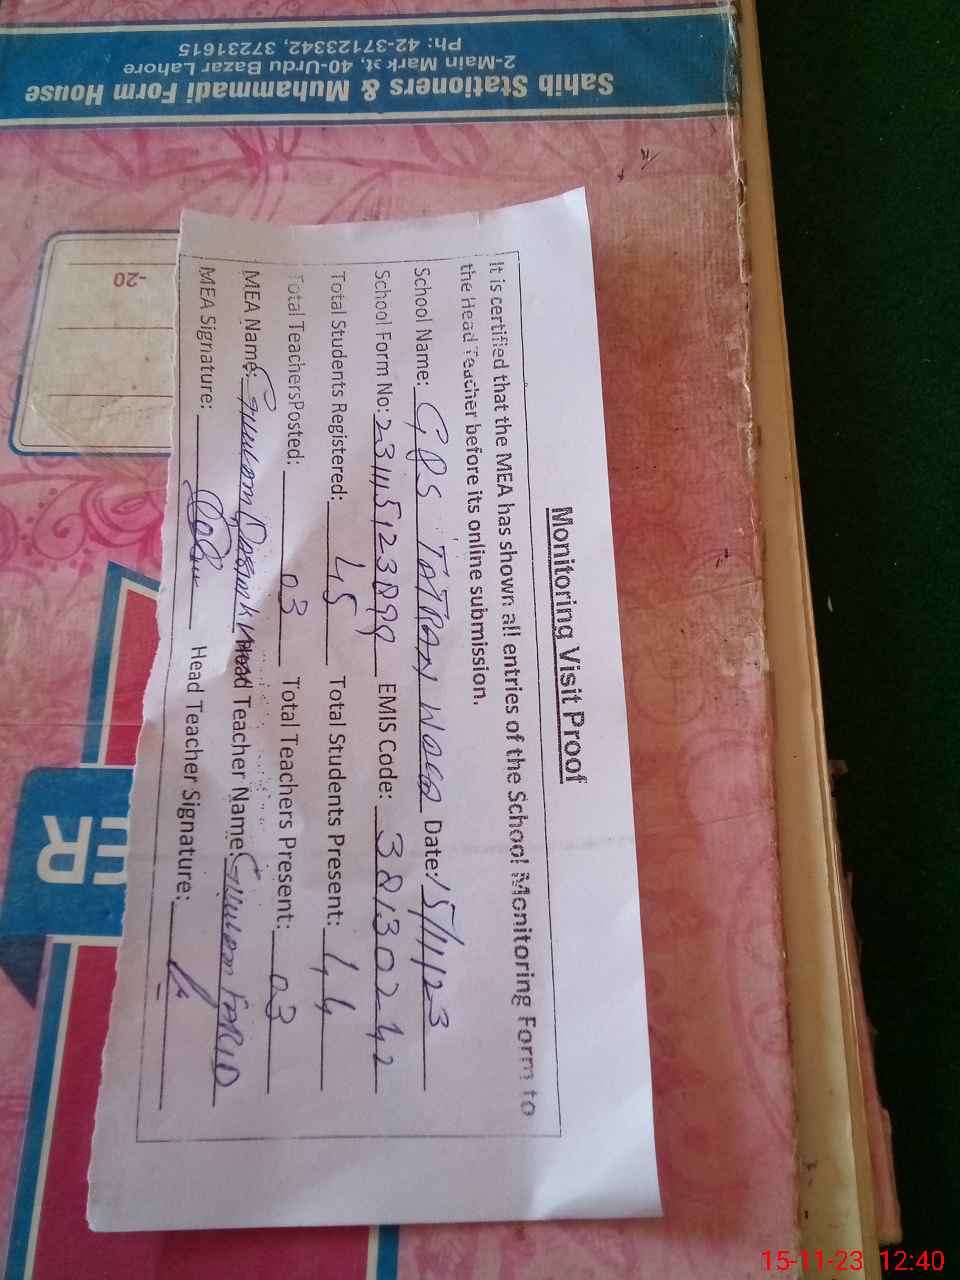 Sahib Stationers & Muhammadi Form House
2-Main Market, 40-Urdu Bazar Lahore
Ph: 42-37123342, 37231615
-20
ER
Monitoring Visit Proof
It is certified that the MEA has shown all entries of the School Monitoring Form to
the Head Teacher before its online submission.
School Name: GPS TATRAN WALA Date: 15/11/23
School Form No: 231115123899 EMIS Code: 38130242
Total Students Registered: 45 Total Students Present: 44
Total TeachersPosted: 03 Total Teachers Present: 03
MEA Name: Ghulam Head Teacher Name: Ghulam FARID
MEA Signature: Head Teacher Signature:
15-11-23 12:40